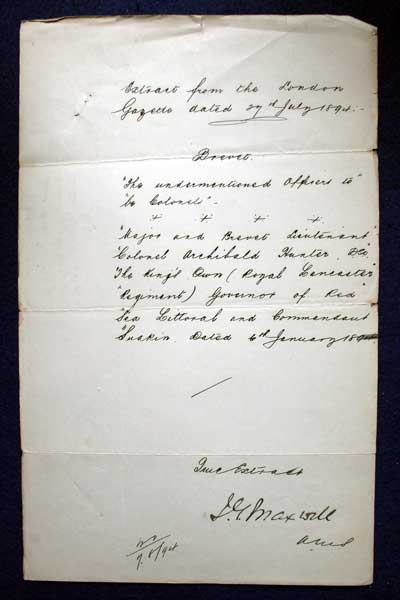 Extract from the London
Gazette dated 27th July 1894:-
Brevet.
"The undermentioned Officers to"
"be Colonels"-
+ + + +
"Major and Brevet Lieutenant"
"Colonel Archibald Hunter, DSO,
"The King's Own (Royal Lancaster
"Regiment) Governor of Red"
"Sea Littoral and Commandant
"Suakin Dated 6th January 189
True Extract
J.G. Maxwell
7.8/94